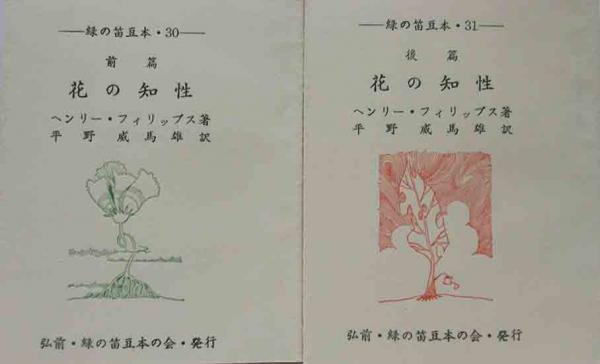 ―緑の笛豆本・30―
前篇
花の知性
ヘンリー・フィリップス著
平野威馬雄訳
弘前・緑の笛豆本の会・発行
―緑の笛豆本・31―
後篇
花の知性
ヘンリー・フィリップス著
平野威馬雄訳
弘前・緑の笛豆本の会・発行